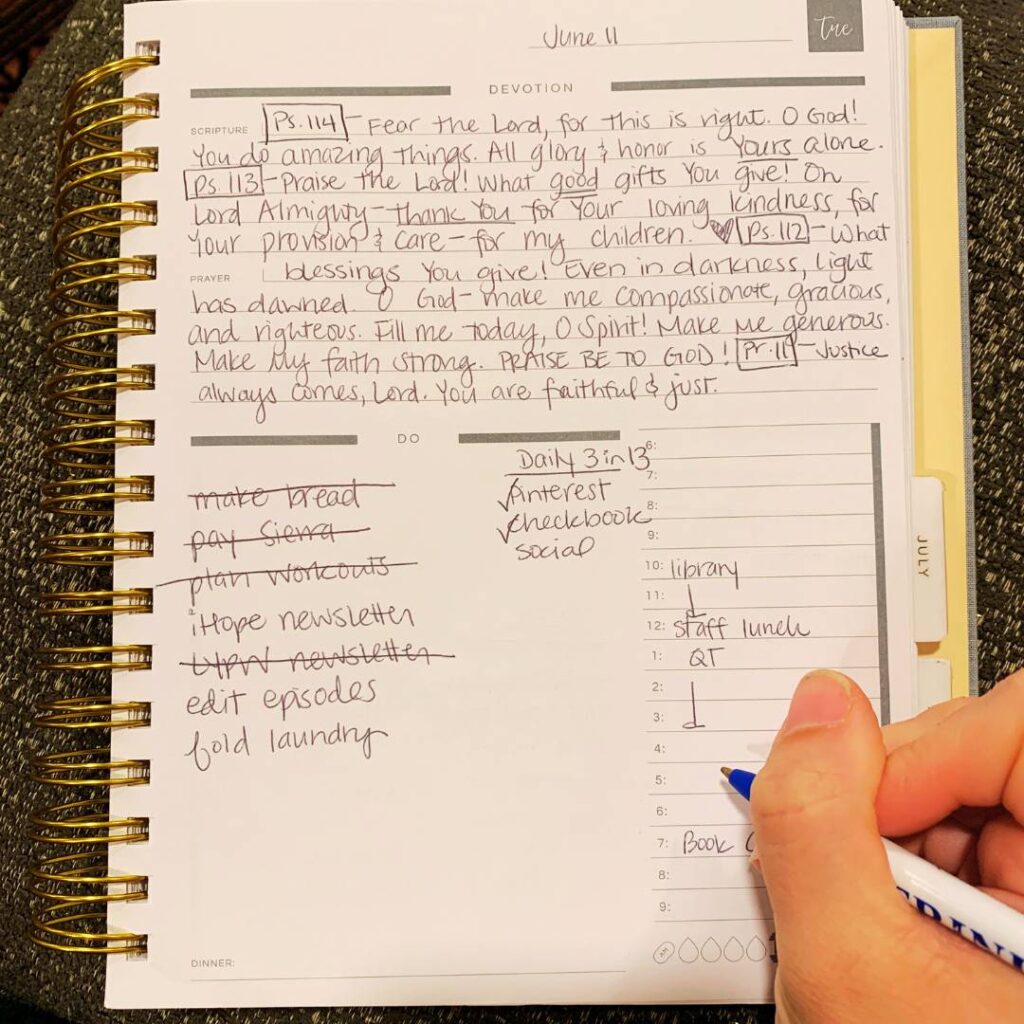 June 11
tue
DEVOTION
SCRIPTURE
Ps. 114 - Fear the Lord, for this is right. O God!
You do amazing things. All glory & honor is Yours alone.
Ps. 113 - Praise the Lord! What good gifts You give! On
Lord Almighty - thank You for Your loving kindness, for
Your provision & care - for my children. ♥ Ps. 112 - What
PRAYER
blessings You give! Even in darkness, light
has dawned. O God - make me compassionate, gracious,
and righteous. Fill me today, O Spirit! Make me generous.
Make my faith strong. PRAISE BE TO GOD! Pr. 11 - Justice
always comes, Lord. You are faithful & just.
DO
make bread
pay Sierra
plan workouts
iHope newsletter
newsletter
edit episodes
fold laundry
Daily 3 in 13
✓ Pinterest
✓ checkbook
social
6:
7:
8:
9:
10: library
11:
12: staff lunch
1: QT
2:
3:
4:
5:
6:
7: Book
8:
9:
DINNER:
AM
JULY